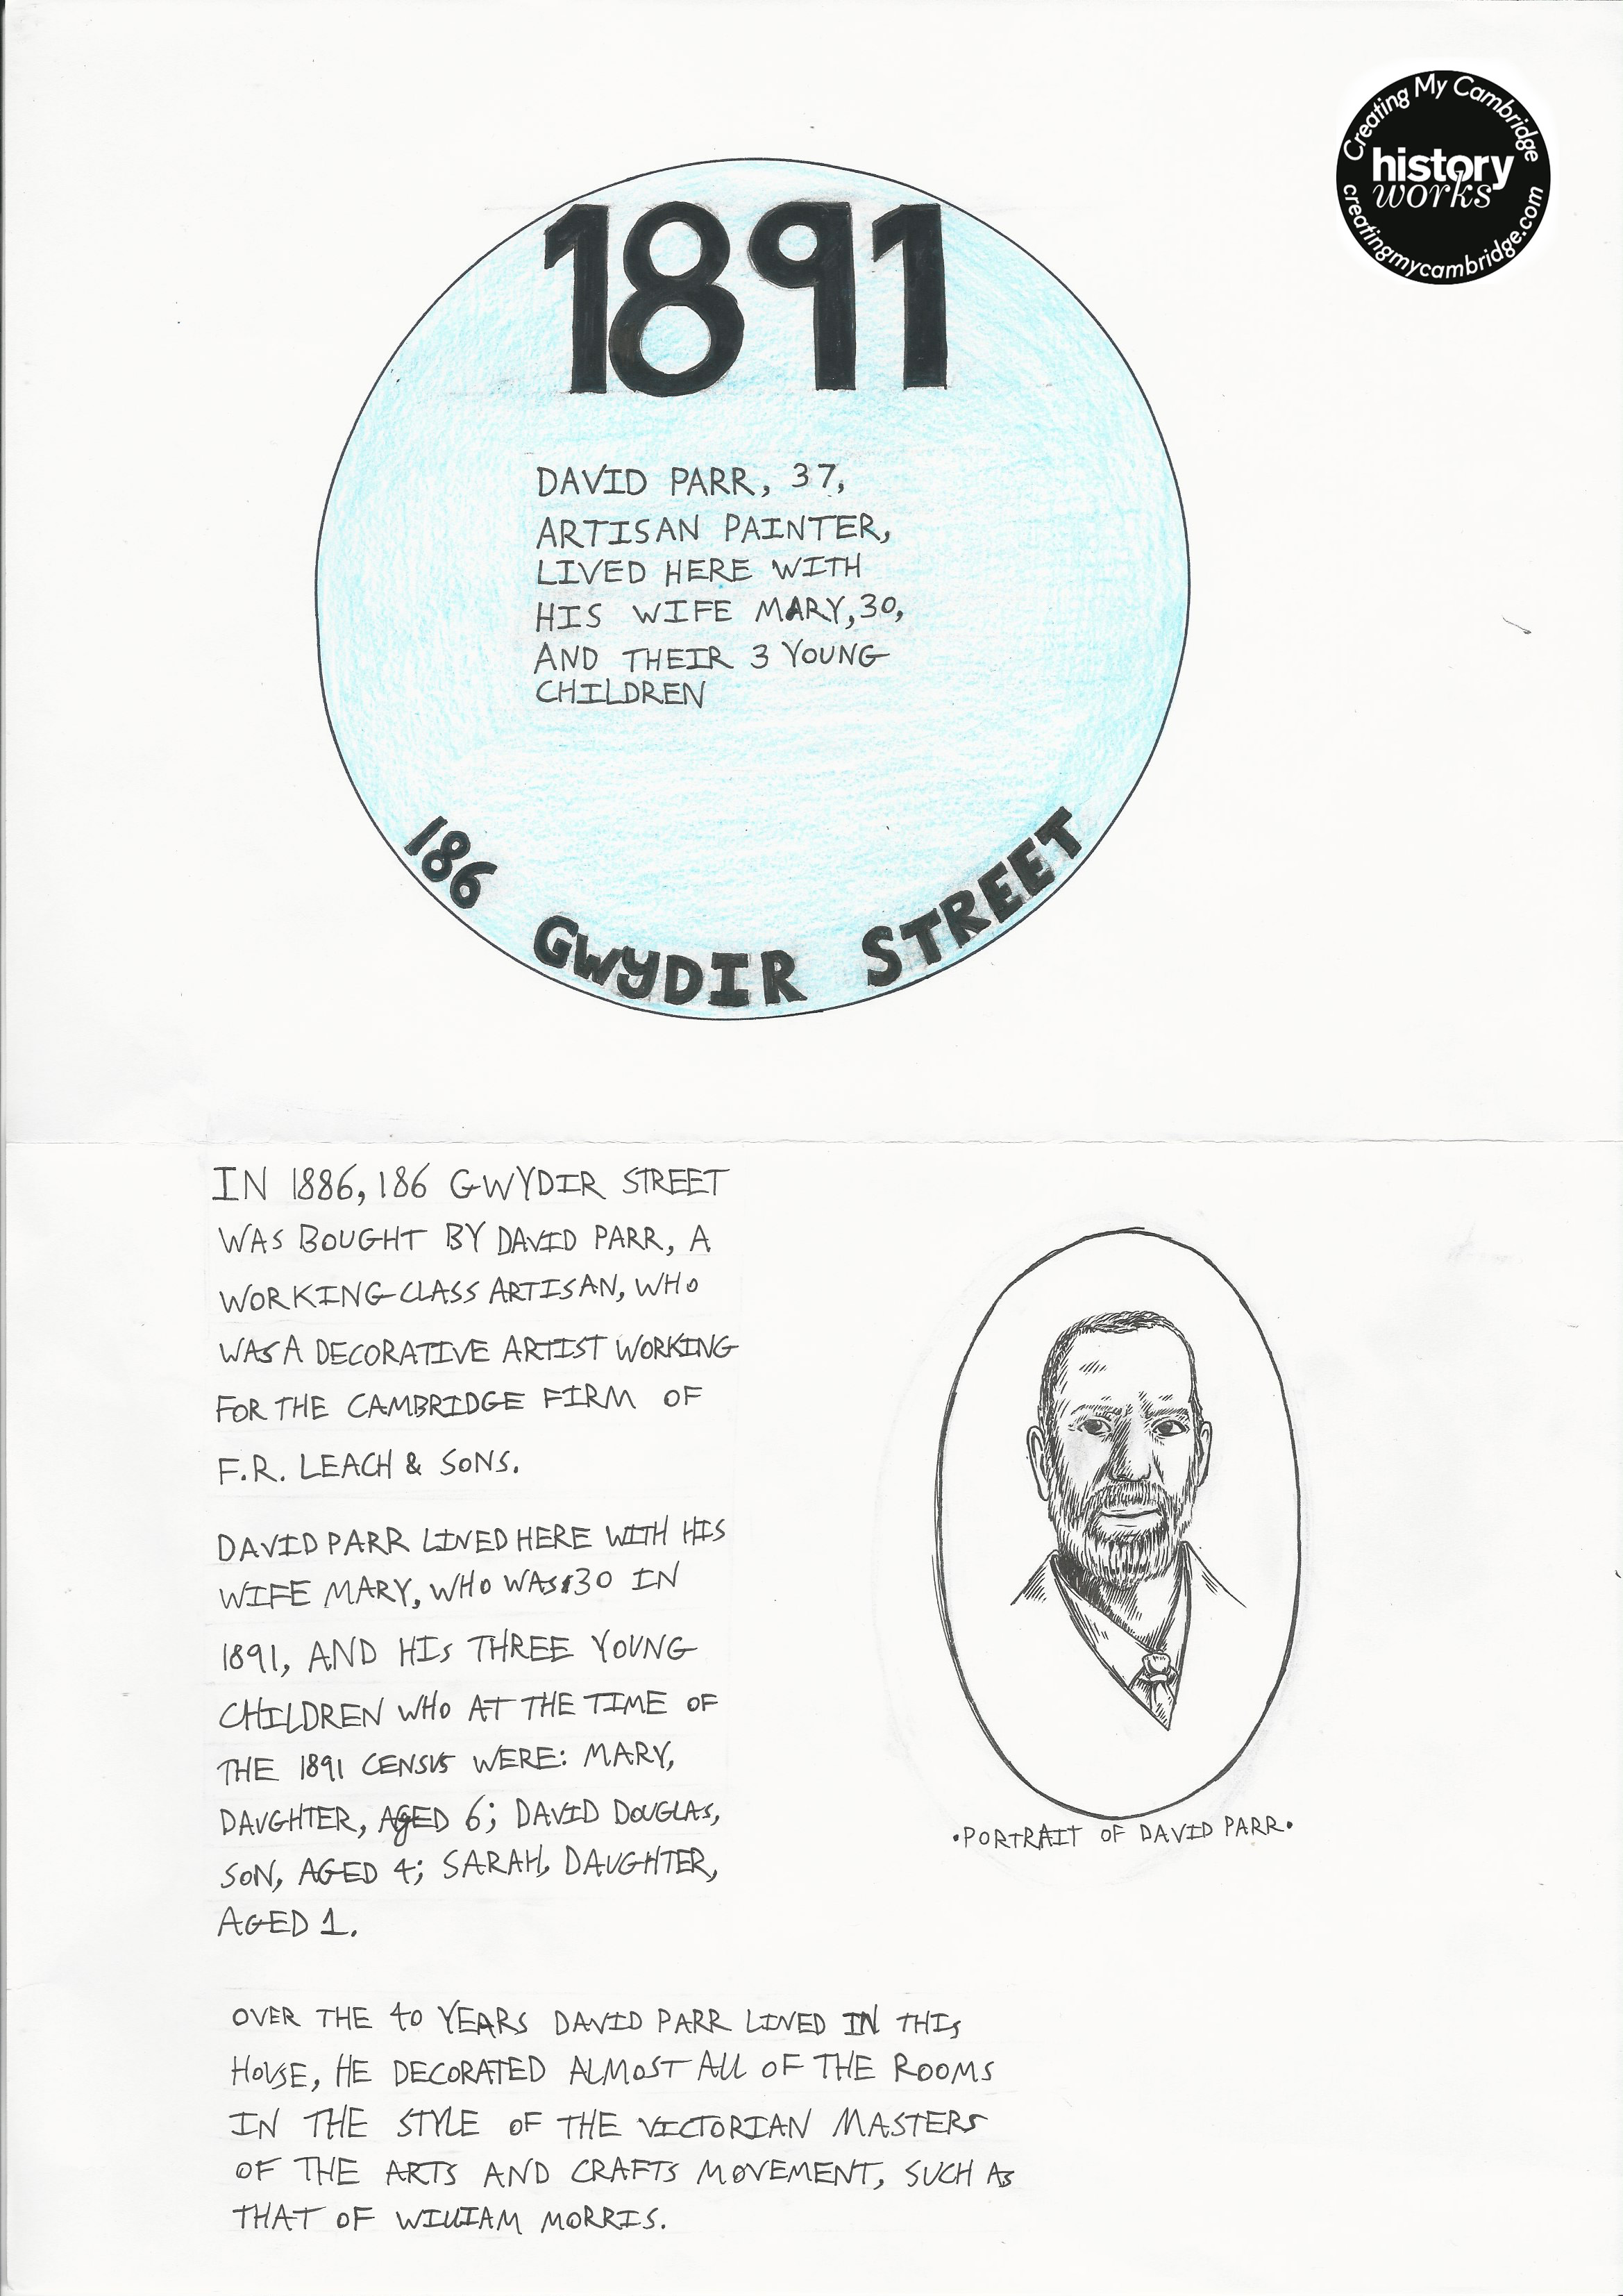 Creating My Cambridge
history
works
creatingmycambridge.com
1891
DAVID PARR, 37,
ARTISAN PAINTER,
LIVED HERE WITH
HIS WIFE MARY, 30,
AND THEIR 3 YOUNG
CHILDREN
186 GWYDIR STREET
IN 1886, 186 GWYDIR STREET
WAS BOUGHT BY DAVID PARR, A
WORKING-CLASS ARTISAN, WHO
WAS A DECORATIVE ARTIST WORKING
FOR THE CAMBRIDGE FIRM OF
F.R. LEACH & SONS.
DAVID PARR LIVED HERE WITH HIS
WIFE MARY, WHO WAS 30 IN
1891, AND HIS THREE YOUNG
CHILDREN WHO AT THE TIME OF
THE 1891 CENSUS WERE: MARY,
DAUGHTER, AGED 6; DAVID DOUGLAS,
SON, AGED 4; SARAH, DAUGHTER,
AGED 1.
•PORTRAIT OF DAVID PARR•
OVER THE 40 YEARS DAVID PARR LIVED IN THIS
HOUSE, HE DECORATED ALMOST ALL OF THE ROOMS
IN THE STYLE OF THE VICTORIAN MASTERS
OF THE ARTS AND CRAFTS MOVEMENT, SUCH AS
THAT OF WILLIAM MORRIS.